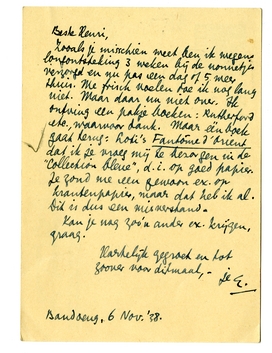 Beste Henri,
Zooals je misschien weet ben ik wegens
longontsteking 3 weken bij de nonnetjes
verzorgd en nu pas een dag of 5 weer
thuis. Me frisch voelen doe ik nog lang
niet. Maar daar nu niet over. Ik
ontving een pakje boeken: Rutherford
etc. waarvoor dank. Maar één boek
gaat terug: Loti's Fantôme d'Orient
dat ik je vroeg mij te bezorgen in de
"Collection bleue", d.i. op goed papier.
Je zond me een gewoon ex. op
krantenpapier, maar dat heb ik al.
Dit is dus een misverstand.
Kan je nog zoo'n ander ex. krijgen,
graag.
Hartelijk gegroet en tot
zoover voor ditmaal,
je E.
Bandoeng, 6 Nov. '38.